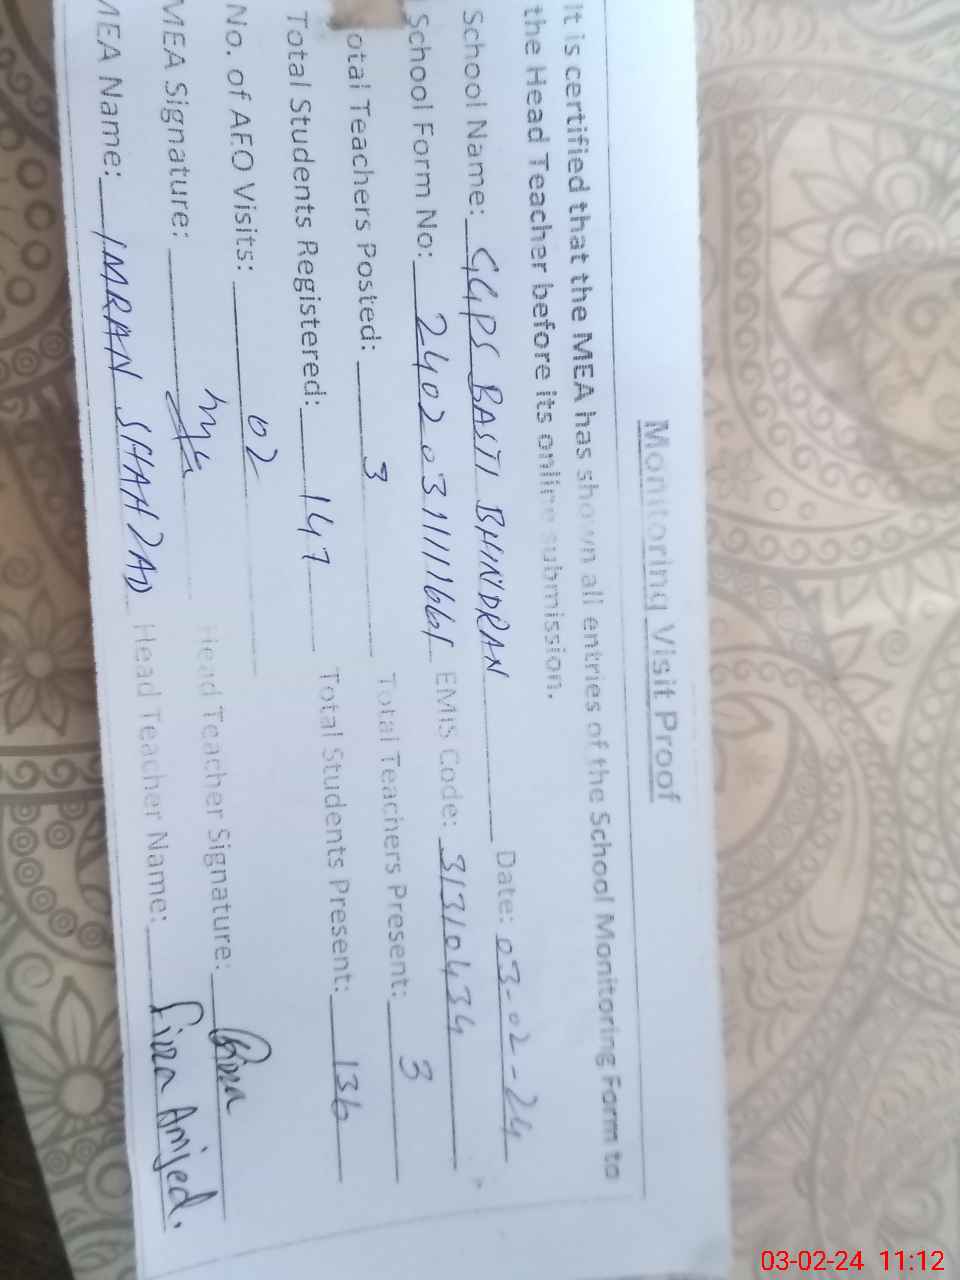 Monitoring Visit Proof
It is certified that the MEA has shown all entries of the School Monitoring Form to
the Head Teacher before its online submission.
School Name: GGPS BASTI BHINDRAN Date: 03-02-24
School Form No: 2402031111661 EMIS Code: 31310434
otal Teachers Posted: 3 Total Teachers Present: 3
Total Students Registered: 147 Total Students Present: 136
No. of AEO Visits: 02
MEA Signature: Head Teacher Signature:
MEA Name: IMRAN SHAHZAD Head Teacher Name: Amjed.
03-02-24 11:12